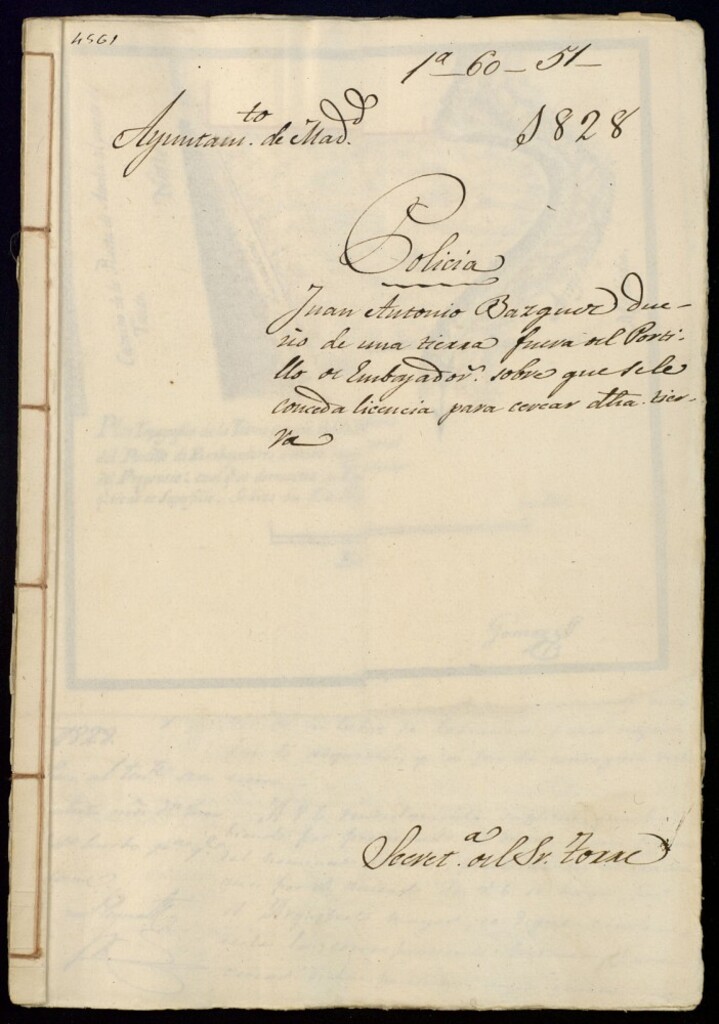 4561
1ª-60-51-
Ayuntam.to de Madd.
1828
Policia
Juan Antonio Bazquez due-
ño de una tierra fuera del Porti-
llo de Embajador.s sobre que se le
conceda licencia para cercar dtha tier-
ra
Secret.a del Sr. Torre